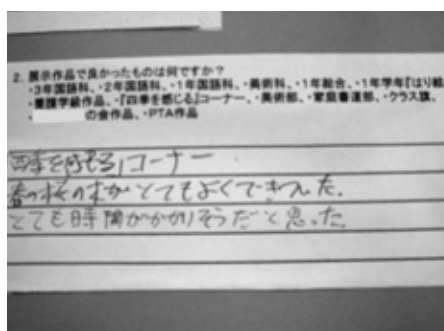 2. 展示作品で良かったものは何ですか？
・3年国語科、・2年国語科、・1年国語科、・美術科、・1年総合、・1年学年『はり絵
・養護学級作品、・『四季を感じる』コーナー、・美術部、・家庭書道部、・クラス旗、
・ の会作品、・PTA作品
四季を感じる」コーナー
春の桜の木がとてもよくできていた。
とても時間がかかりそうだと思った